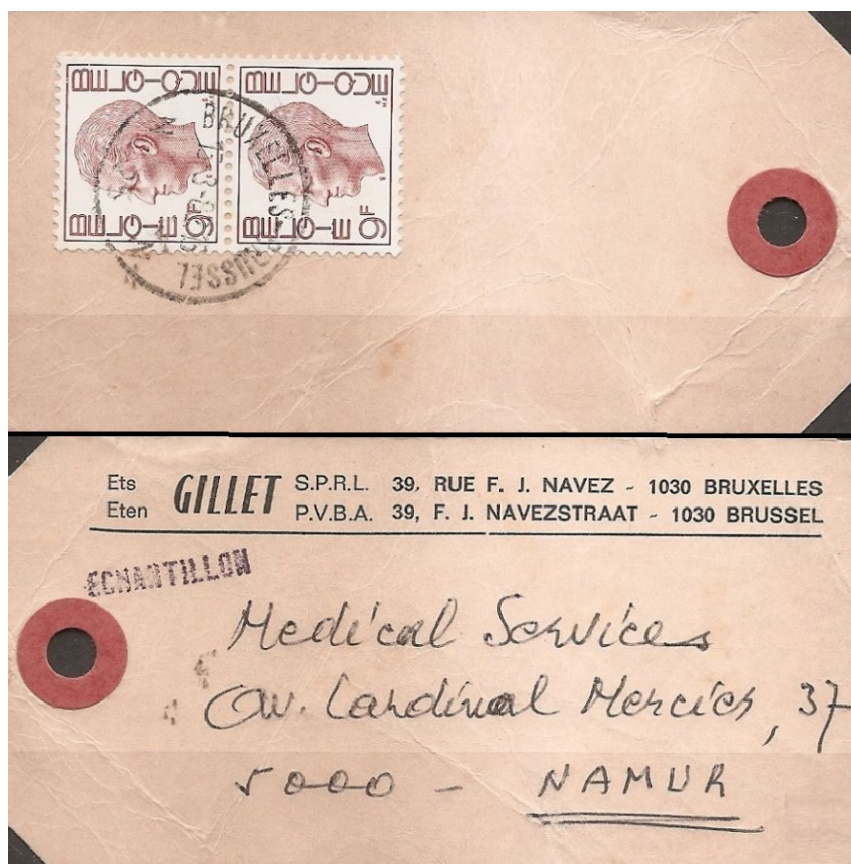 BELGIQUE BELGIQUE
BELGIE 9F BELGIE 9F
BRUXELLES BRUSSEL
Ets GILLET S.P.R.L. 39, RUE F. J. NAVEZ - 1030 BRUXELLES
Eten P.V.B.A. 39, F. J. NAVEZSTRAAT - 1030 BRUSSEL
ECHANTILLON
Medical Services
Av. Cardinal Mercier, 37
5000 - NAMUR